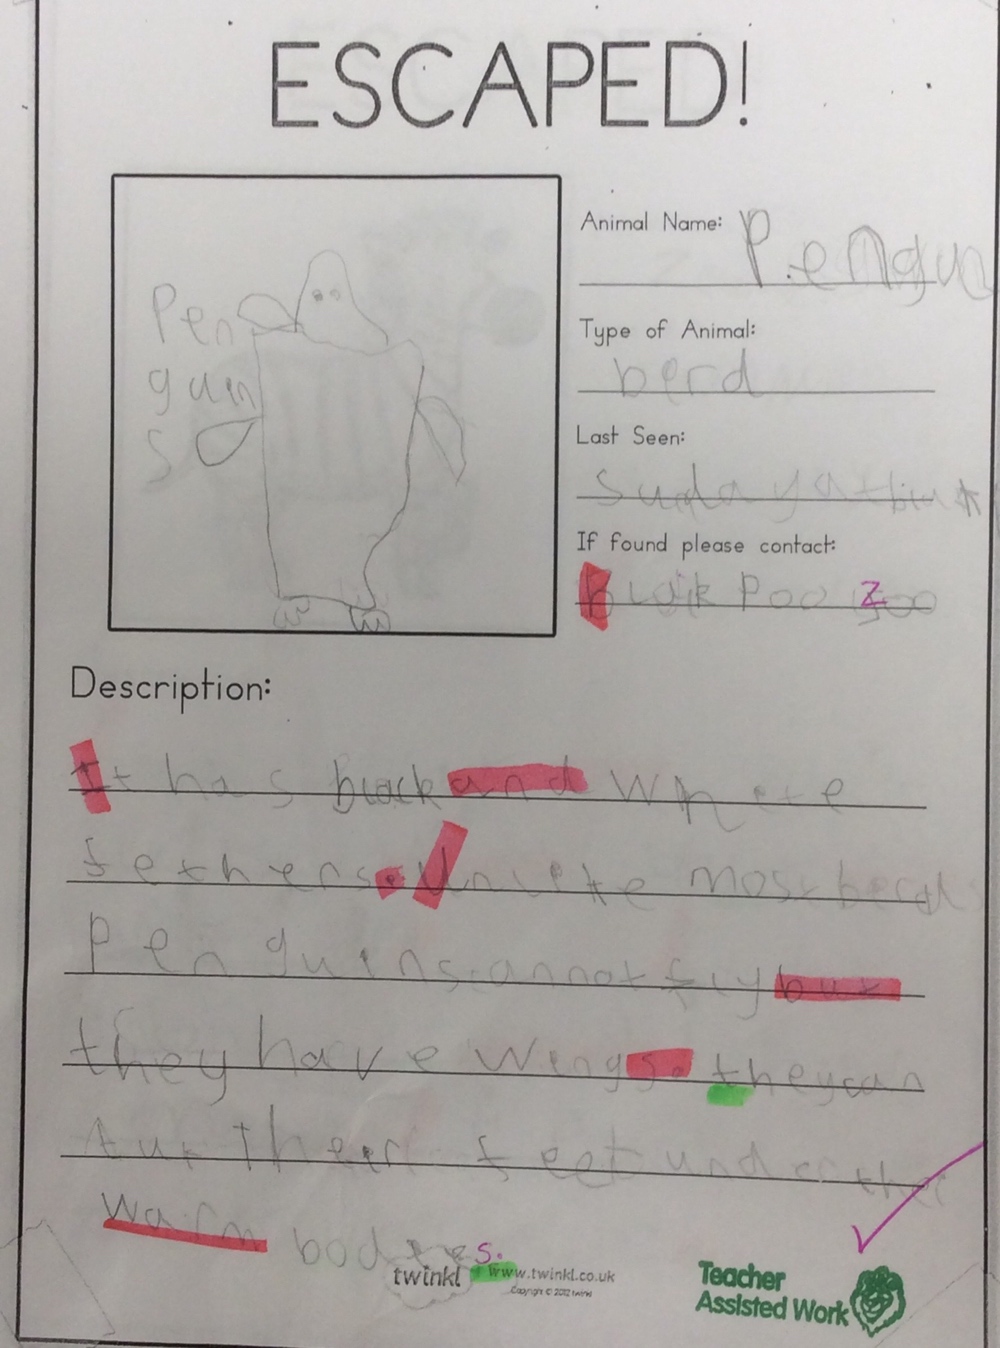 ESCAPED!
Pen
gun
s
Animal Name: Pengun
Type of Animal:
berd
Last Seen:
Sunday at
If found please contact:
poo zoo
Description:
It has black and
fethers. Unlike most berds
Penguins cannot fly but
they have wings. they can
their feet under ther
warm bodies.
twinkl www.twinkl.co.uk
Copyright © 2012 twinkl
Teacher
Assisted Work